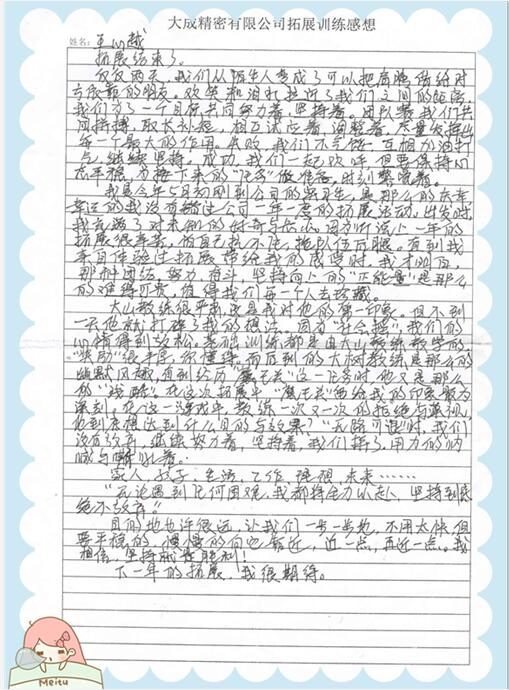 大成精密有限公司拓展训练感想
姓名：
拓展结束了。
仅仅两天，我们从陌生人变成了可以把肩膀借给对
方依靠的朋友。欢笑和泪水拉近了我们之间的距离，
我们为了一个目标共同努力着，坚持着。团队赛我们共
同拼搏，取长补短，相互适应着，调整着，尽量发挥出
每一个最大的作用。失败，我们不气馁，互相加油打
气，继续坚持。成功，我们一起欢呼，但要保持心
态平稳，为接下来的"任务"做准备，时刻警惕着。
我是今年5月初刚到公司的实习生，是那么的庆幸
幸运的我没有错过公司一年一度的拓展活动。出发时，
我充满了对未知的好奇与担心，因为听说上一年的
拓展很辛苦，怕自己熬不住，拖队伍后腿。直到我
亲自体验过拓展带给我的感觉时，我才明白，
那种团结、努力、奋斗、坚持向上的"正能量"是那么
的难得可贵，值得我们每一个人去珍藏。
大山教练很严肃，这是我对他的第一印象。但不到
一天他就打碎了我的想法。因为 我们的
心情得到放松。基础训练都是由大山教练教学的
"奖励"很丰厚，很 而后到的大树教练是那么的
幽默风趣，直到经历 这一任务时，他又是那么
的 在这次拓展中 给我的印象最为
深刻。在这一游戏中，教练一次又一次的拒绝与藐视，
他到底想达到什么目的与效果？"无路可退"时，我们
没有放弃，继续努力着，坚持着，我们拼了，用力的呐
喊与嘶吼着。
家人、妻子、生活、工作、理想、未来……
"无论遇到任何困难，我都将全力以赴，坚持到底，
绝不放弃。"
目的地也许很远，让我们一步一步地，不用太快，但
要平稳的，慢慢的向它靠近，近一点，再近一点。我
相信，坚持就是胜利！
下一年的拓展，我很期待。
Meitu